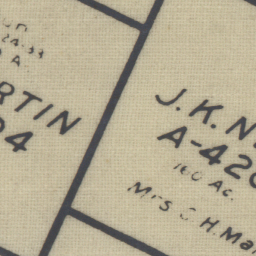 24-33
A
RTIN
04
J. K. N
A-420
160 Ac.
Mrs C H. Mar